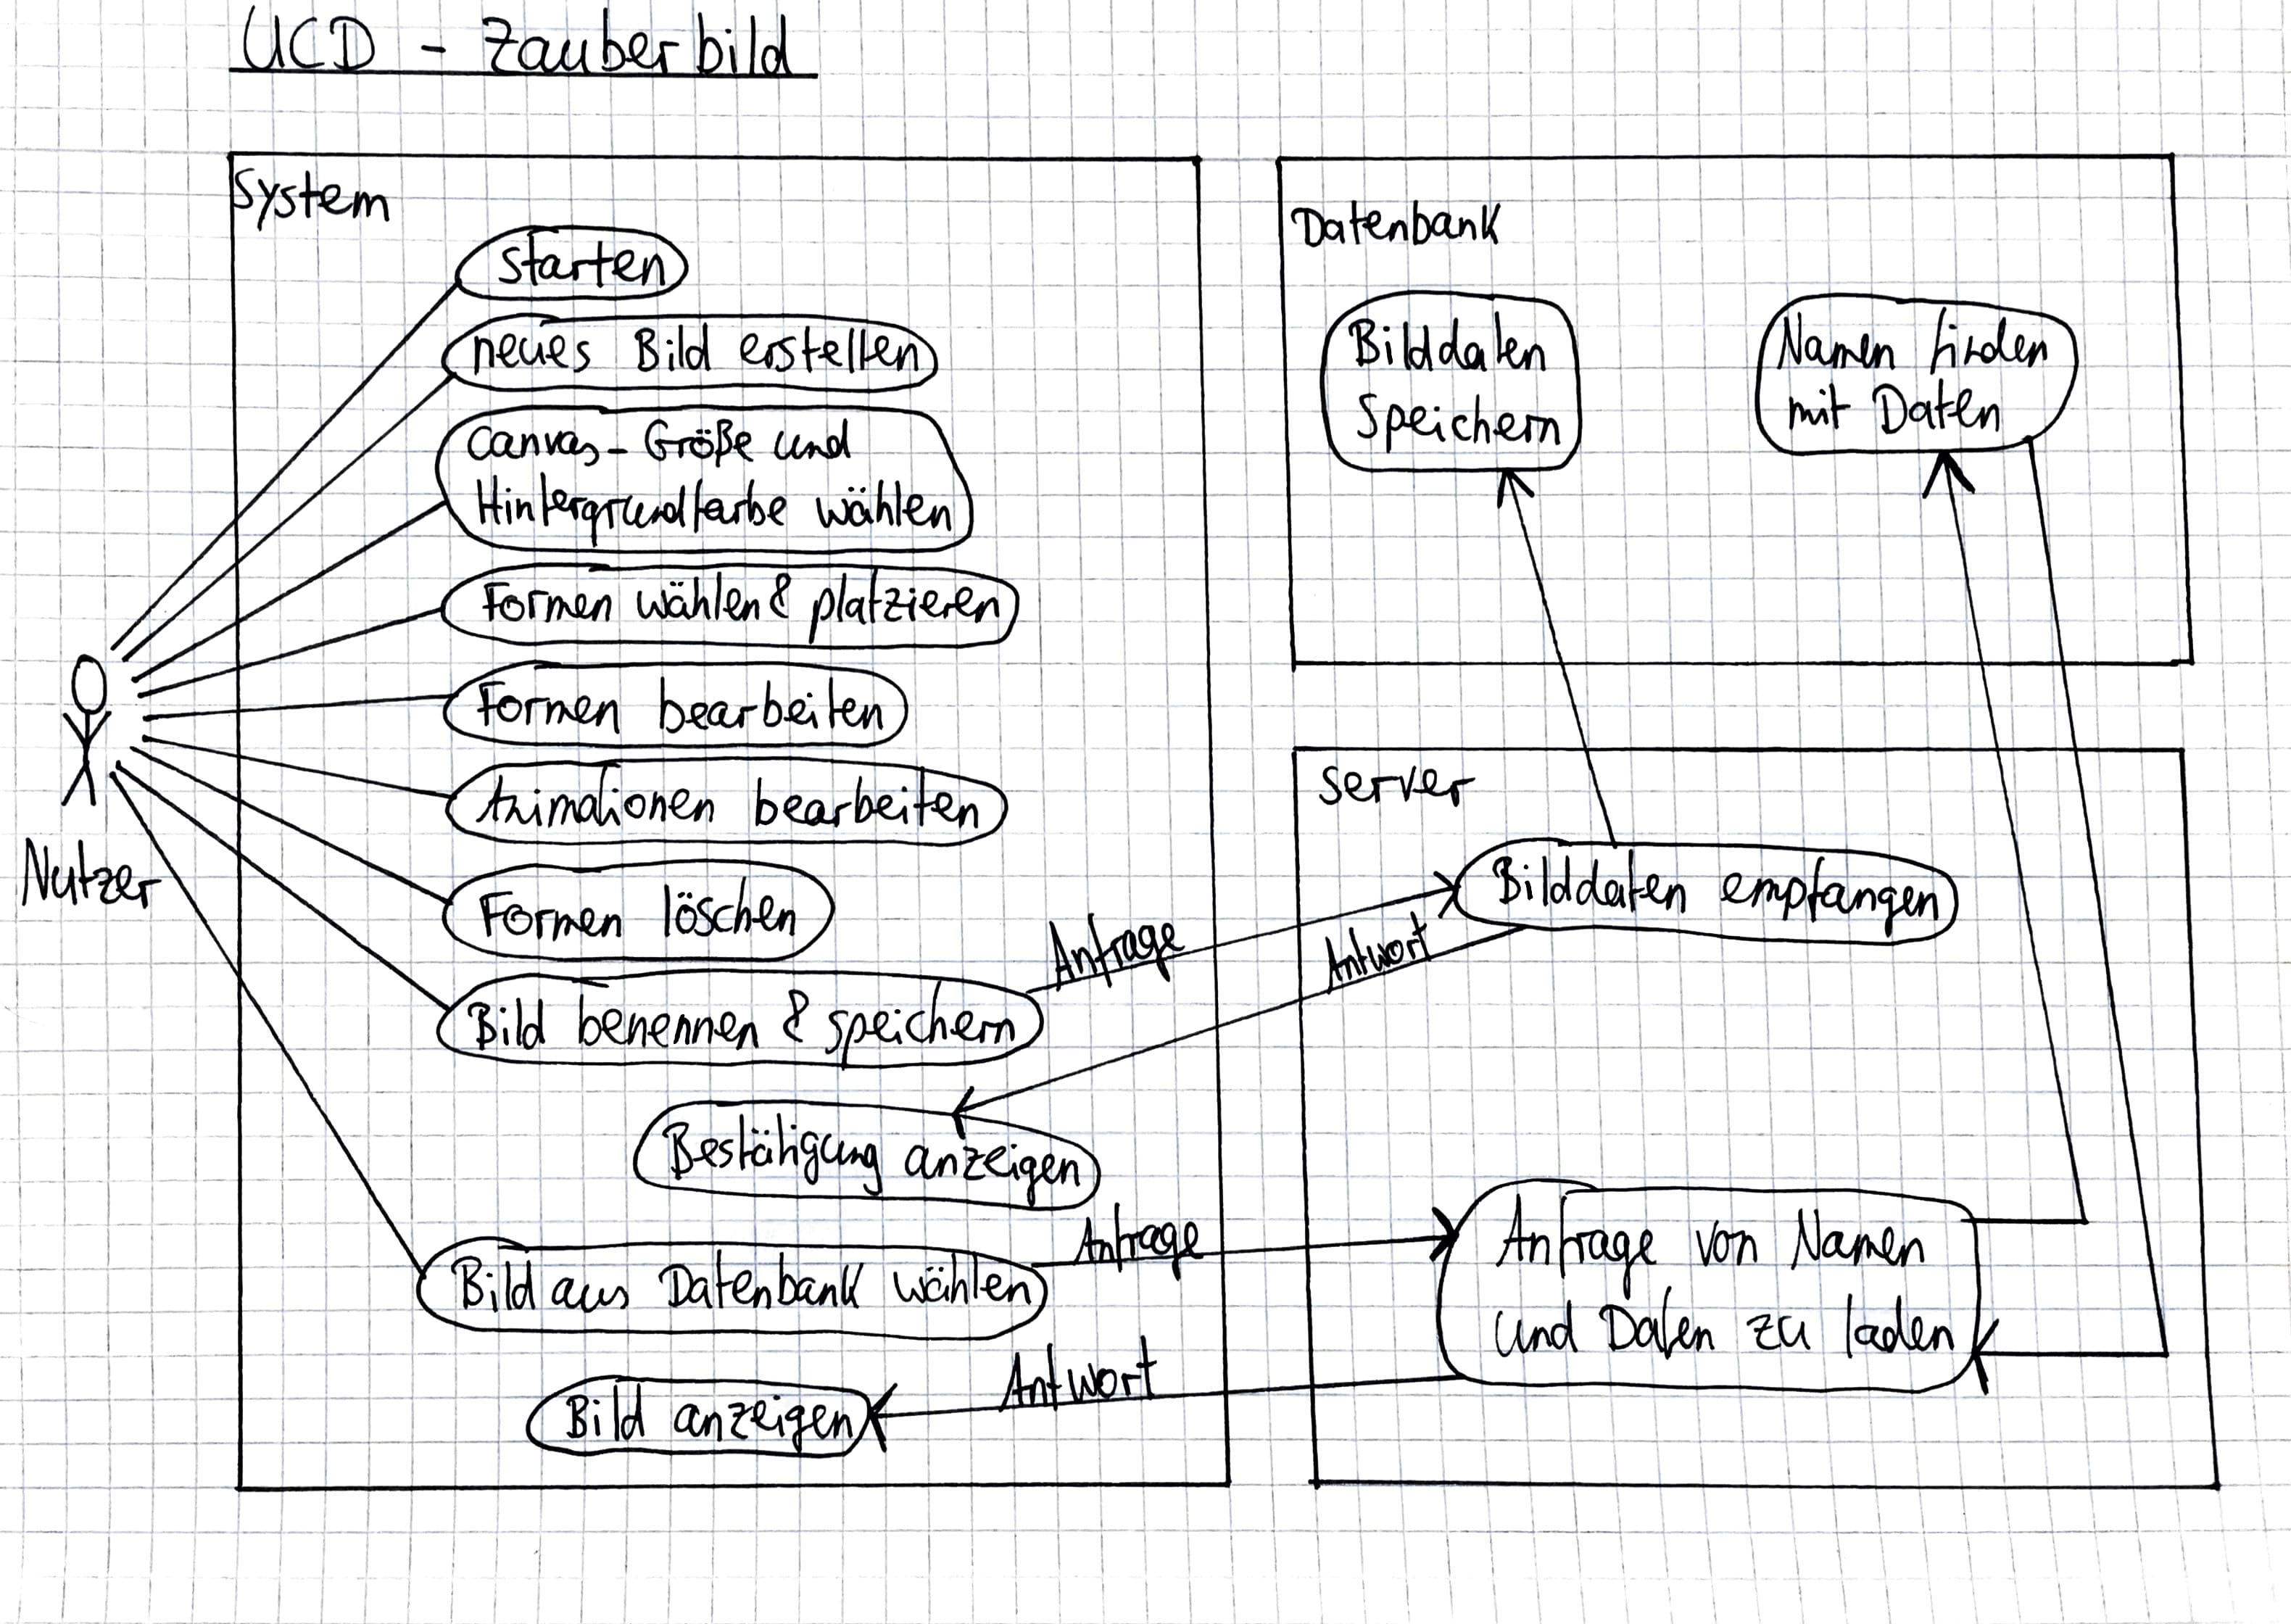 UCD - Zauberbild
System
starten
neues Bild erstellen
Canvas-Größe und
Hintergrundfarbe wählen
Formen wählen & platzieren
Formen bearbeiten
Animationen bearbeiten
Formen löschen
Bild benennen & speichern
Bestätigung anzeigen
Bild aus Datenbank wählen
Bild anzeigen
Nutzer
Anfrage
Antwort
Anfrage
Antwort
Datenbank
Bilddaten
Speichern
Namen finden
mit Daten
Server
Bilddaten empfangen
Anfrage von Namen
und Daten zu laden